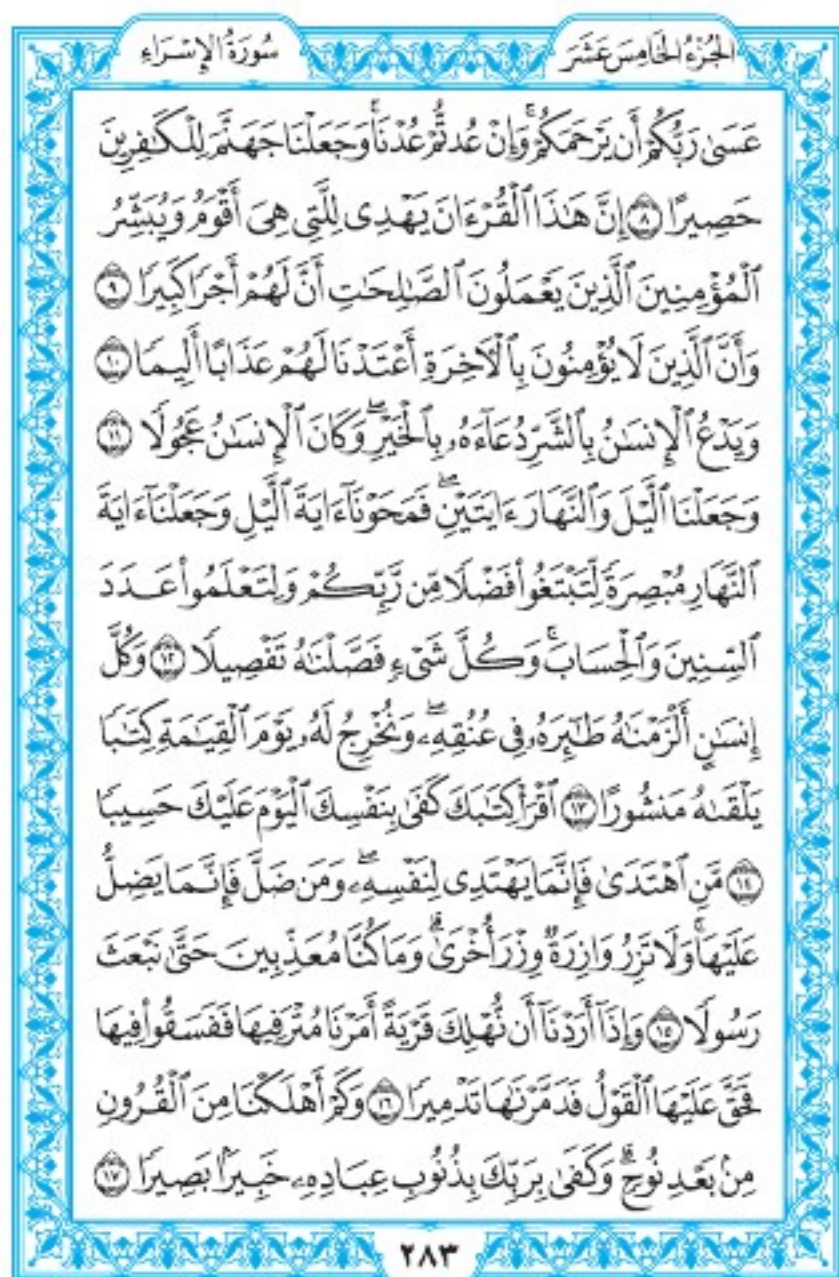 الجُزْءُ الخَامِسَ عَشَرَ
سُورَةُ الإِسْرَاءِ
عَسَىٰ رَبُّكُمْ أَن يَرْحَمَكُمْۚ وَإِنْ عُدتُّمْ عُدْنَاۚ وَجَعَلْنَا جَهَنَّمَ لِلْكَٰفِرِينَ
حَصِيرًا ٨ إِنَّ هَٰذَا ٱلْقُرْءَانَ يَهْدِى لِلَّتِى هِىَ أَقْوَمُ وَيُبَشِّرُ
ٱلْمُؤْمِنِينَ ٱلَّذِينَ يَعْمَلُونَ ٱلصَّٰلِحَٰتِ أَنَّ لَهُمْ أَجْرًا كَبِيرًا ٩
وَأَنَّ ٱلَّذِينَ لَا يُؤْمِنُونَ بِٱلْءَاخِرَةِ أَعْتَدْنَا لَهُمْ عَذَابًا أَلِيمًا ١٠
وَيَدْعُ ٱلْإِنسَٰنُ بِٱلشَّرِّ دُعَآءَهُۥ بِٱلْخَيْرِۖ وَكَانَ ٱلْإِنسَٰنُ عَجُولًا ١١
وَجَعَلْنَا ٱلَّيْلَ وَٱلنَّهَارَ ءَايَتَيْنِۖ فَمَحَوْنَآ ءَايَةَ ٱلَّيْلِ وَجَعَلْنَآ ءَايَةَ
ٱلنَّهَارِ مُبْصِرَةً لِّتَبْتَغُوا۟ فَضْلًا مِّن رَّبِّكُمْ وَلِتَعْلَمُوا۟ عَدَدَ
ٱلسِّنِينَ وَٱلْحِسَابَۚ وَكُلَّ شَىْءٍ فَصَّلْنَٰهُ تَفْصِيلًا ١٢ وَكُلَّ
إِنسَٰنٍ أَلْزَمْنَٰهُ طَٰٓئِرَهُۥ فِى عُنُقِهِۦۖ وَنُخْرِجُ لَهُۥ يَوْمَ ٱلْقِيَٰمَةِ كِتَٰبًا
يَلْقَىٰهُ مَنشُورًا ١٣ ٱقْرَأْ كِتَٰبَكَ كَفَىٰ بِنَفْسِكَ ٱلْيَوْمَ عَلَيْكَ حَسِيبًا
١٤ مَّنِ ٱهْتَدَىٰ فَإِنَّمَا يَهْتَدِى لِنَفْسِهِۦۖ وَمَن ضَلَّ فَإِنَّمَا يَضِلُّ
عَلَيْهَاۚ وَلَا تَزِرُ وَازِرَةٌ وِزْرَ أُخْرَىٰۗ وَمَا كُنَّا مُعَذِّبِينَ حَتَّىٰ نَبْعَثَ
رَسُولًا ١٥ وَإِذَآ أَرَدْنَآ أَن نُّهْلِكَ قَرْيَةً أَمَرْنَا مُتْرَفِيهَا فَفَسَقُوا۟ فِيهَا
فَحَقَّ عَلَيْهَا ٱلْقَوْلُ فَدَمَّرْنَٰهَا تَدْمِيرًا ١٦ وَكَمْ أَهْلَكْنَا مِنَ ٱلْقُرُونِ
مِنۢ بَعْدِ نُوحٍۗ وَكَفَىٰ بِرَبِّكَ بِذُنُوبِ عِبَادِهِۦ خَبِيرًۢا بَصِيرًا ١٧
٢٨٣